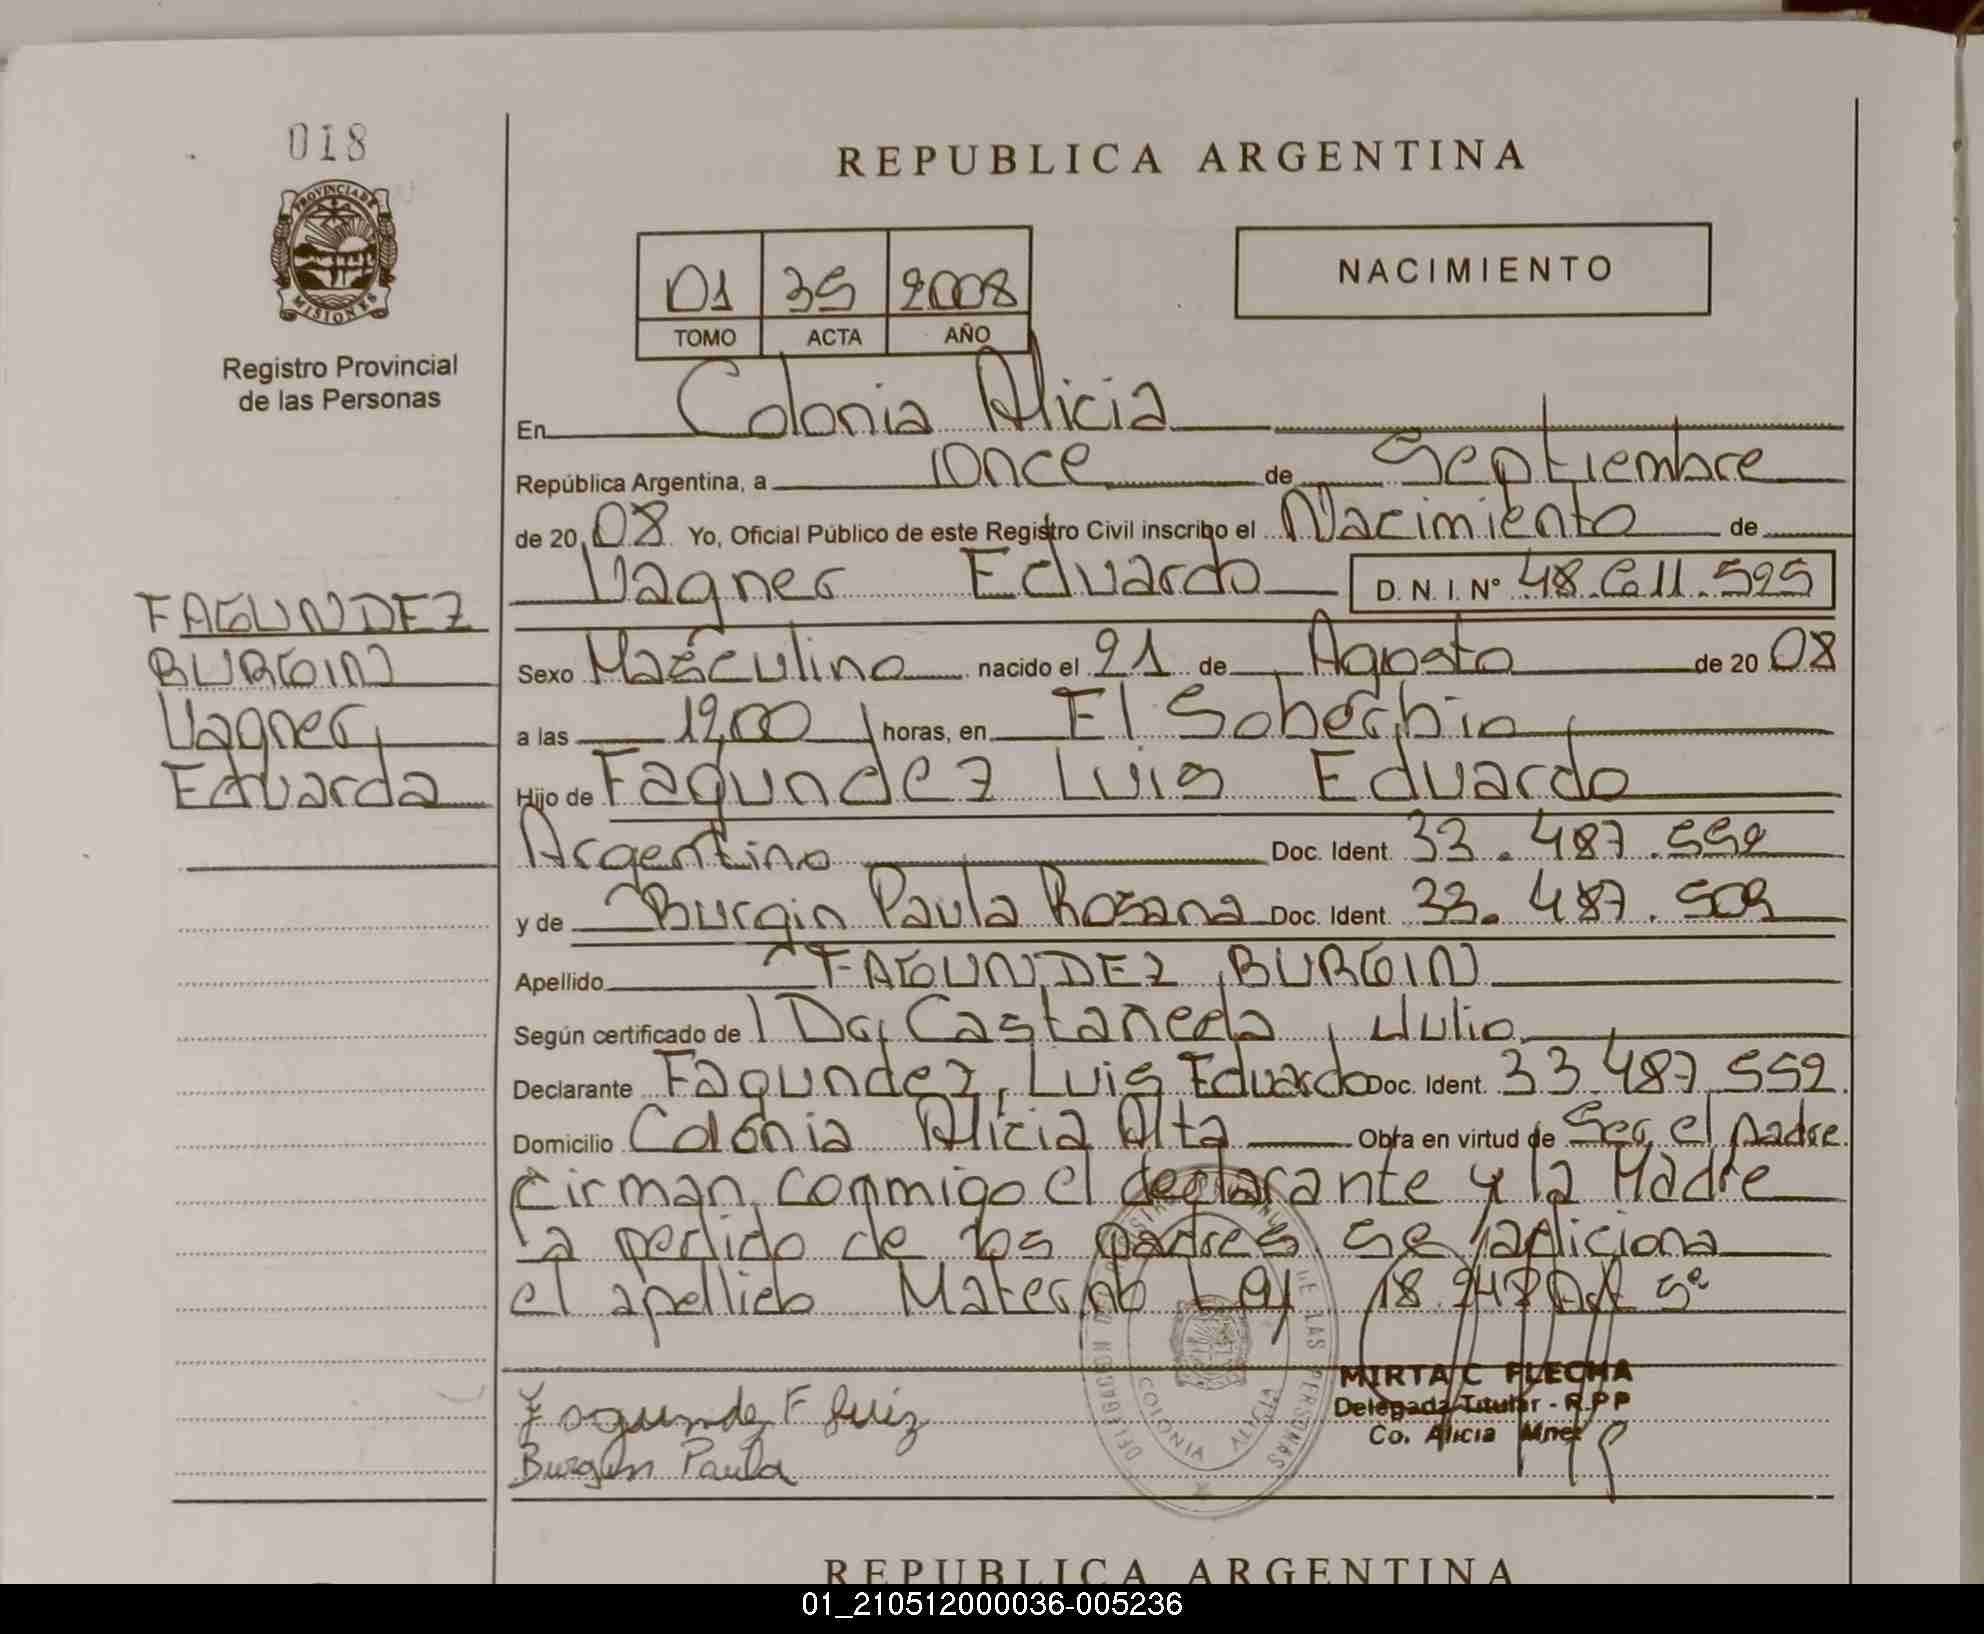 018
PROVINCIA DE
MISIONES
Registro Provincial
de las Personas
REPUBLICA ARGENTINA
01 35 2008
TOMO ACTA AÑO
NACIMIENTO
En Colonia Alicia
República Argentina, a once de Septiembre
de 20 08 Yo, Oficial Público de este Registro Civil inscribo el Nacimiento de
Vagner Eduardo D. N. I. Nº 48.611.595
FAGUNDEZ
BURGIN
Vagner
Eduardo
Sexo Masculino nacido el 21 de Agosto de 20 08
a las 12,00 horas, en El Soberbio
Hijo de Fagundez Luis Eduardo
Argentino Doc. Ident. 33.487.552
y de Burgin Paula Rosana Doc. Ident. 33.487.503
Apellido FAGUNDEZ BURGIN
Según certificado de Dr, Castaneda, Julio
Declarante Fagundez, Luis Eduardo Doc. Ident. 33 487 552
Domicilio Colonia Alicia Alta Obra en virtud de Ser el padre
Firman conmigo el declarante y la Madre
a pedido de los padres se adiciona
el apellido Materno Ley 18.248 Art 5º
Fagundez Luiz
Burgin Paula
COLONIA ALICIA
DE LAS PERSONAS
MIRTA C FLECHA
Delegada Titular - R.P.P
Co. Alicia Mnes
REPUBLICA ARGENTINA
01_210512000036-005236